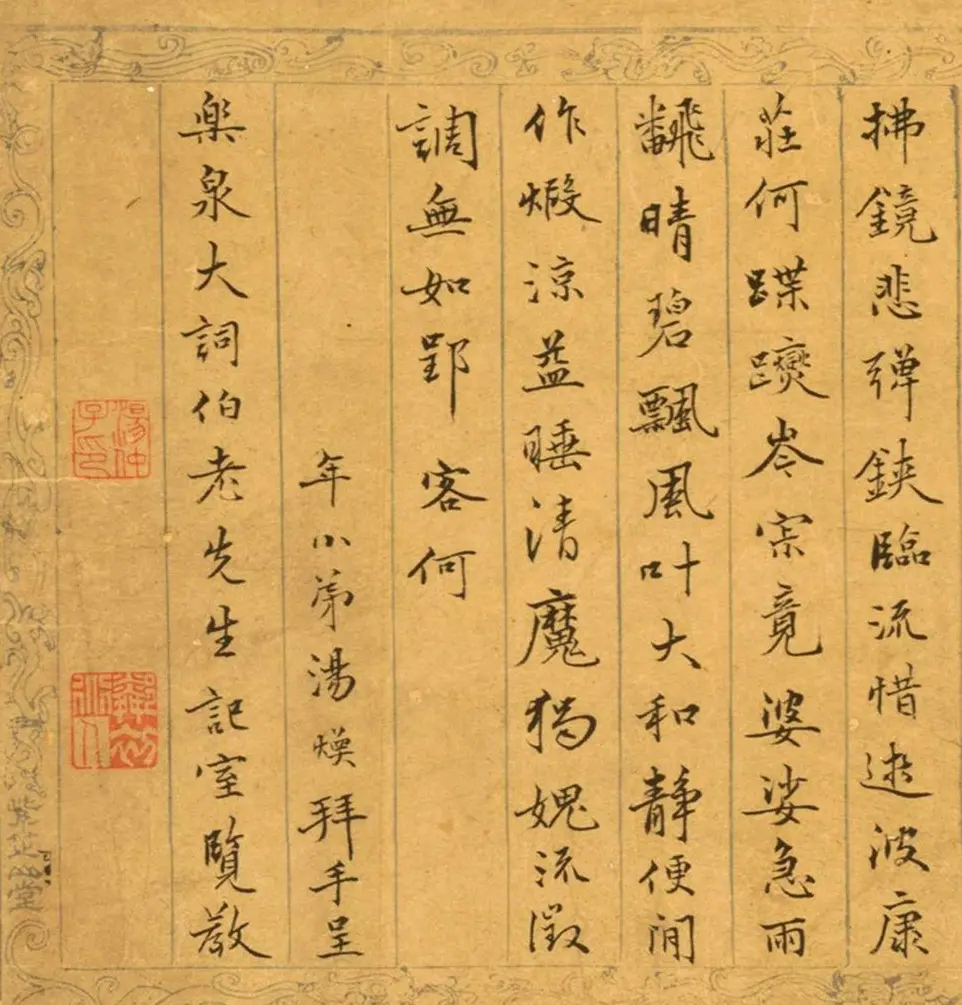 拂鏡悲彈鋏臨流惜逝波康
莊何蹀躞岑寂竟婆娑急雨
飜晴碧飄風叶大和靜便閒
作煅涼益睡清魔獨媿流徵
調無如郢客何
年小弟湯煥拜手呈
楽泉大詞伯老先生記室覽教
湯仲子印